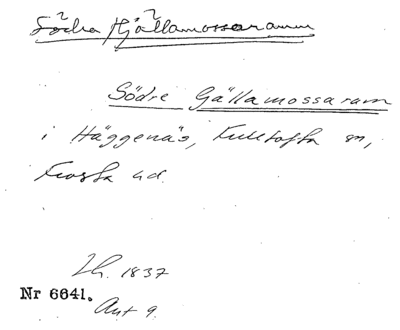 2 2
Södra Hjällamossaramm
Södre Gällamossaram
i Häggenäs, Fulltofta sn,
Frosta hd.
Lh. 1837
Nr 6641.
Akt 9.